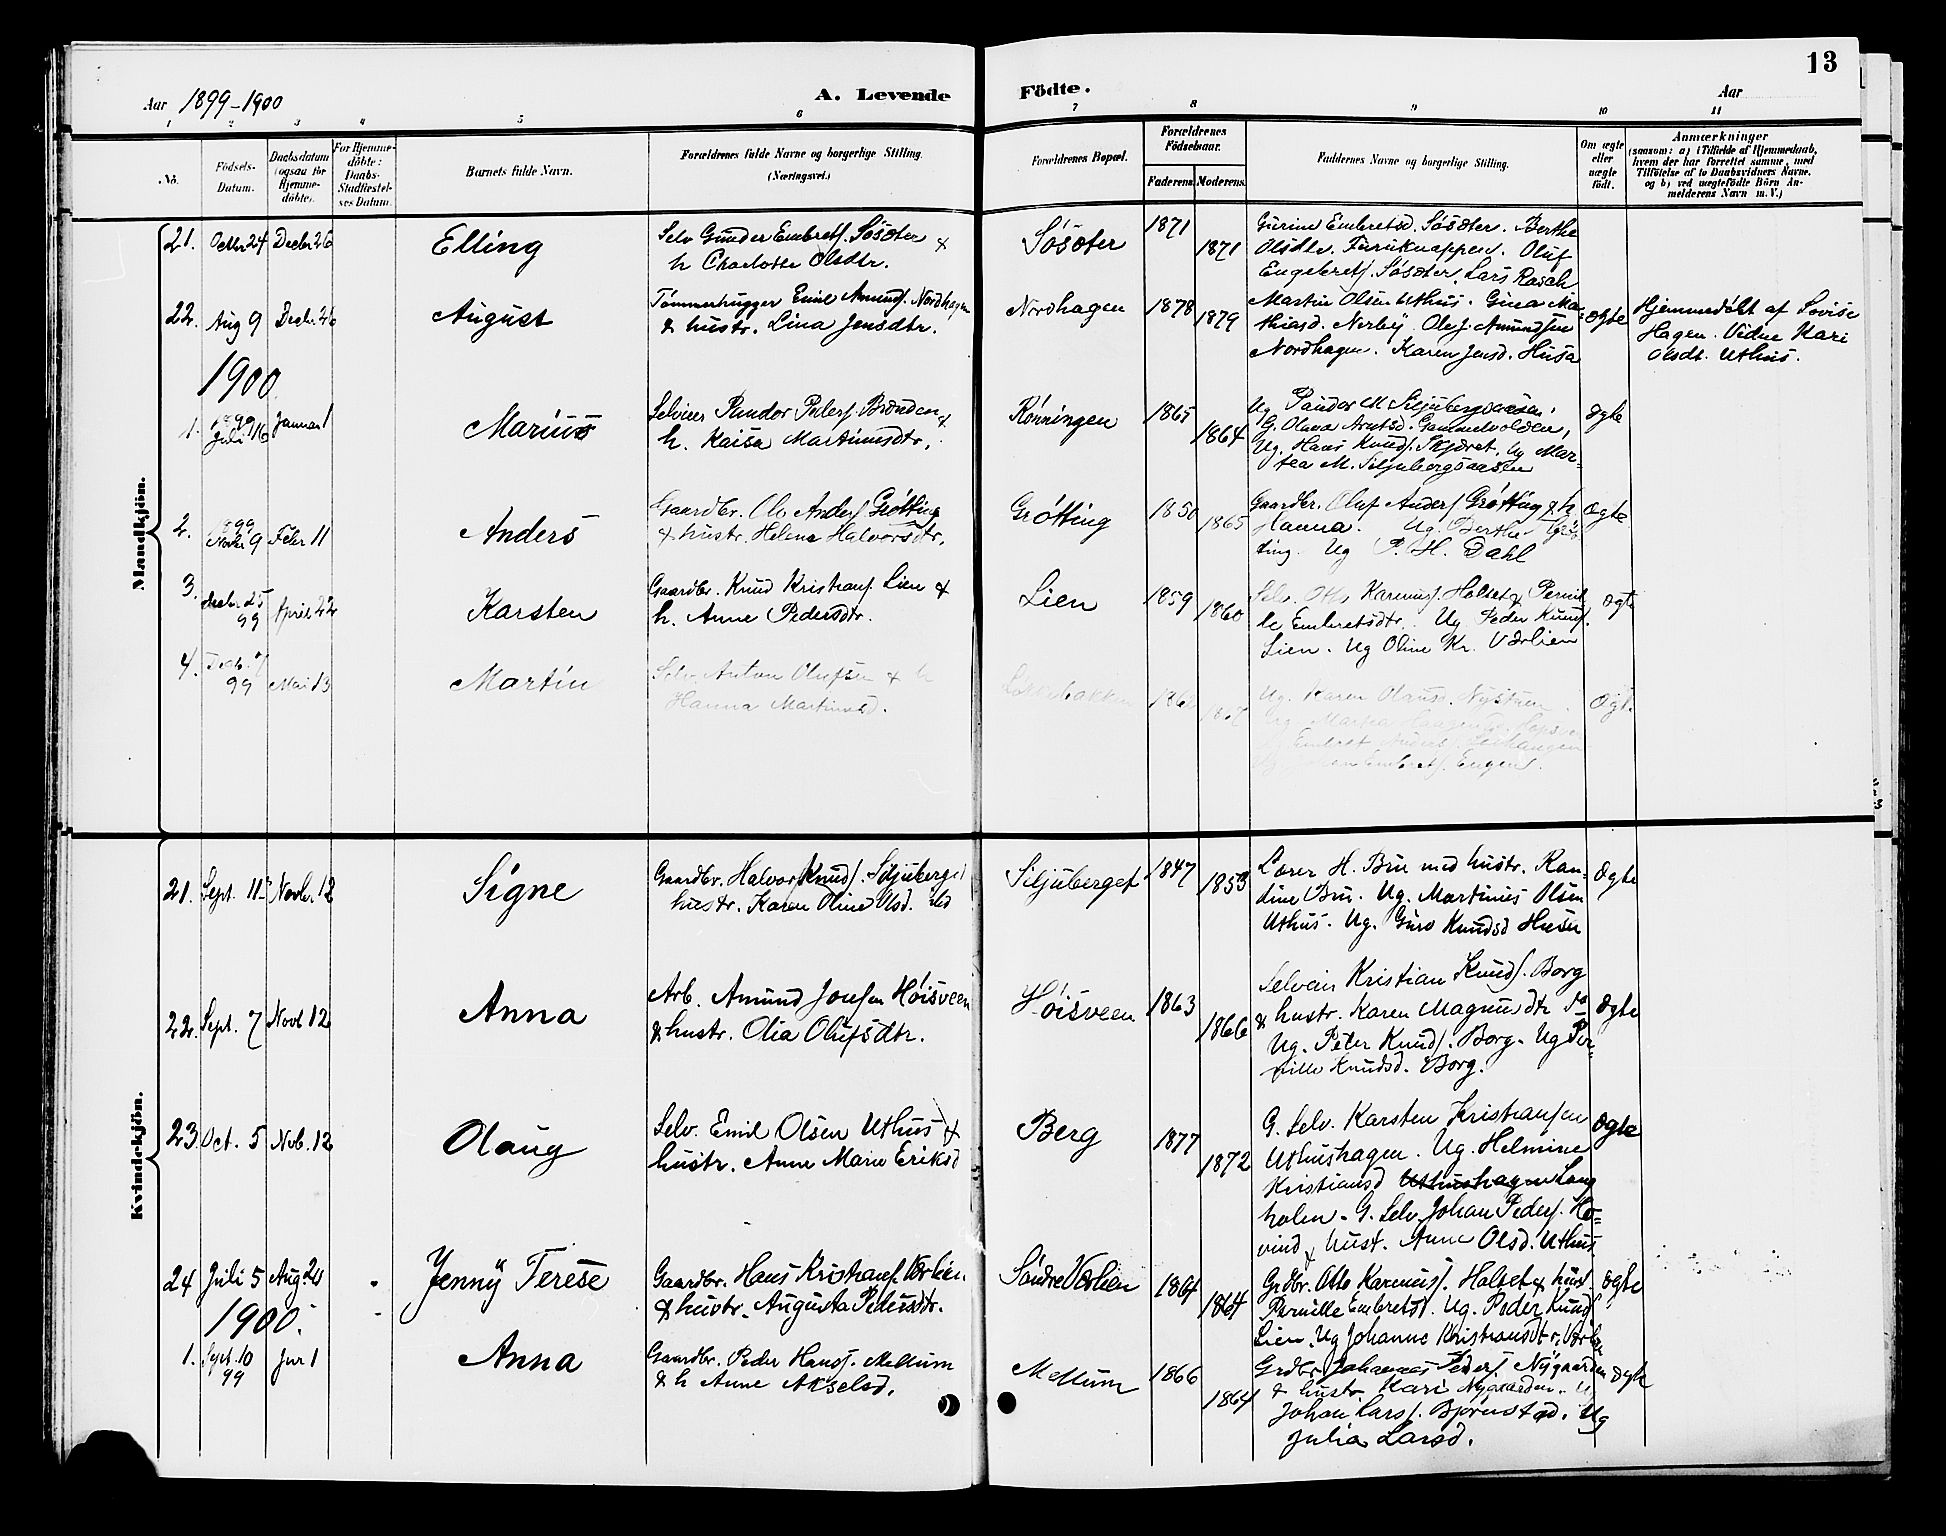 13
Aar 1899-1900
A. Levende Födte.
Aar
1 2 3 4 5 6 7 8 9 10 11
No.
Födsels-Datum.
Daabsdatum (ogsaa for Hjemme-döbte).
For Hjemme-döbte: Daabs-Stadfæstel-ses Datum.
Barnets fulde Navn.
Forældrenes fulde Navne og borgerlige Stilling.
(Næringsvei.)
Forældrenes Bopæl.
Forældrenes Födselsaar.
Faderens. Moderens.
Faddernes Navne og borgerlige Stilling.
Om ægte eller uægte födt.
Anmærkninger
(saasom: a) i Tilfælde af Hjemmedaab,
hvem der har forrettet samme, med
Tilföielse af to Daabsvidners Navne,
og b) ved uægtefödte Börn An-
melderens Navn m. V.)
Mandkjön.
21. Octbr 24 Decbr 26 Elling
Selv. Gunder Embretsf. Søsæter &
h Charlotte Olsdtr.
Søsæter 1871 1871
Gurine Embretsd. Søsæter. Berthe
Olsdtr. Furuknappen. Oluf
Engebretsf. Søsæter. Lars Rasch
22. Aug 9 Decbr. 26 August
Tømmerhugger Emil Amundsf. Nordhagen
& hustr. Lina Jensdtr.
Nordhagen 1878 1879
Martin Olsen Uthus. Gina Ma-
thiasd. Nerby. Olef Amundsen
Nordhagen. Karen Jensd. Husa
ægte
Hjemmedøbt af Lovise
Hagen. Vidne Kari
Olsdt. Uthus.
1900
1. 1899 Juli 16 Januar 1 Marius
Selveier Pander Pedersf. Brænden &
h. Kaisa Martinusdtr.
Rønningen 1865 1864
Ug. Pander M. Siljubergsaasen.
G. Olava Arntsd. Gammelvolden,
Ug. Hans Knudsf. Skjæret. Ug Mar-
tea M. Siljubergsaasen
ægte
2. 1899 Novbr 9 Febr 11 Anders
Gaardbr. Ole Andersf Grøtting
& hustr. Helene Halvorsdtr.
Grøtting 1850 1865
Gaardbr. Oluf Andersf Grøtting & h
Hanna. Ug. Berthe Grøt-
ting. Ug P. H. Dahl
ægte
3. Decbr. 25 99 April 22 Karsten
Gaardbr. Knud Kristiansf. Lien &
h. Anne Pedersdtr.
Lien 1859 1860
Selv. Otto Karenusf. Holset & Pernil
le Embretsdtr. Ug Peder Knudsf.
Lien. Ug Oline Kr. Værlien
ægte
4. 99 Mai 13 Martin
Selv. Anton Olufsen & h
Hanna Martinusd.
1862
Ug. Karen Olausd. Nystuen
ægt.
Kvindekjön.
21. Sept. 11 Novbr. 12 Signe
Gaardbr. Halvor Knudsf. Siljuberget
hustr. Karen Oline Olsd. ibd
Siljuberget 1847 1853
Lærer H. Bru med hustr. Ran-
dine Bru. Ug. Martinus Olsen
Uthus. Ug. Guro Knudsd Husu
Ægte
22. Sept. 7 Novb 12 Anna
Arb. Amund Josefsen Høisveen
& hustr. Olia Olufsdtr.
Høisveen 1863 1866
Selveier Kristian Knudsf. Borg
& hustr. Karen Magnusdtr
Ug. Peter Knudsf. Borg. Ug Per-
nille Knudsd. Borg.
Ægte
23. Oct. 5 Nvb. 12 Olaug
Selv. Emil Olsen Uthus &
hustr. Anne Marie Eriksd
Berg 1877 1872
G. Selv. Karsten Kristiansen
Uthushagen. Ug. Helmine
Kristiansd Uthushagen Lang
holen. G. Selv Johan Pedersf. Ho-
vind & hust. Anne Olsd. Uthus.
Ægte
24 Juli 5 Aug. 20 Jenny Terese
Gaardbr. Hans Kristiansf. Værlien
& hustr. Augusta Pedersdtr.
Søndre Værlien 1864 1864
Grdbr. Otto Karenusf. Holset & hust
Pernille Embretsd. Ug. Peder Knudsf
Lien. Ug Johanne Kristiansdtr. Værlien
Ægte
1900.
1. Sept. 10 99 Jnr 1 Anna
Gaardbr. Peder Hansf. Mellum
& h Anne Akselsd.
Mellum 1866 1864
Grdbr. Johannes Pedersf. Nygaarden
& hustr. Kari Nygaarden. U
Johan Larsf. Bjørnstad. Ug
Julia Larsd.
ægte